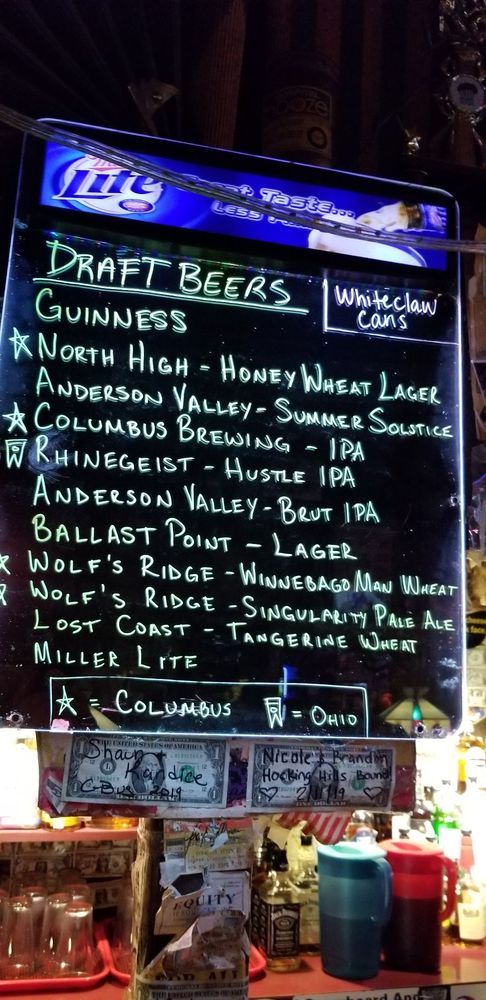 Lite
Great Taste...
Less
DRAFT BEERS
Whiteclaw
Cans
GUINNESS
☆ NORTH HIGH - HONEY WHEAT LAGER
ANDERSON VALLEY - SUMMER SOLSTICE
☆ COLUMBUS BREWING - IPA
RHINEGEIST - HUSTLE IPA
ANDERSON VALLEY - BRUT IPA
BALLAST POINT - LAGER
☆ WOLF'S RIDGE - WINNEBAGO MAN WHEAT
☆ WOLF'S RIDGE - SINGULARITY PALE ALE
LOST COAST - TANGERINE WHEAT
MILLER LITE
☆ = COLUMBUS = OHIO
THE UNITED STATES OF AMERICA
Shaun
Kandice
C-Bus 2019
Nicole & Brandon
Hocking Hills Bound!
♡ 2/11/19 ♡
ONE DOLLAR
EQUITY
FOR ALL